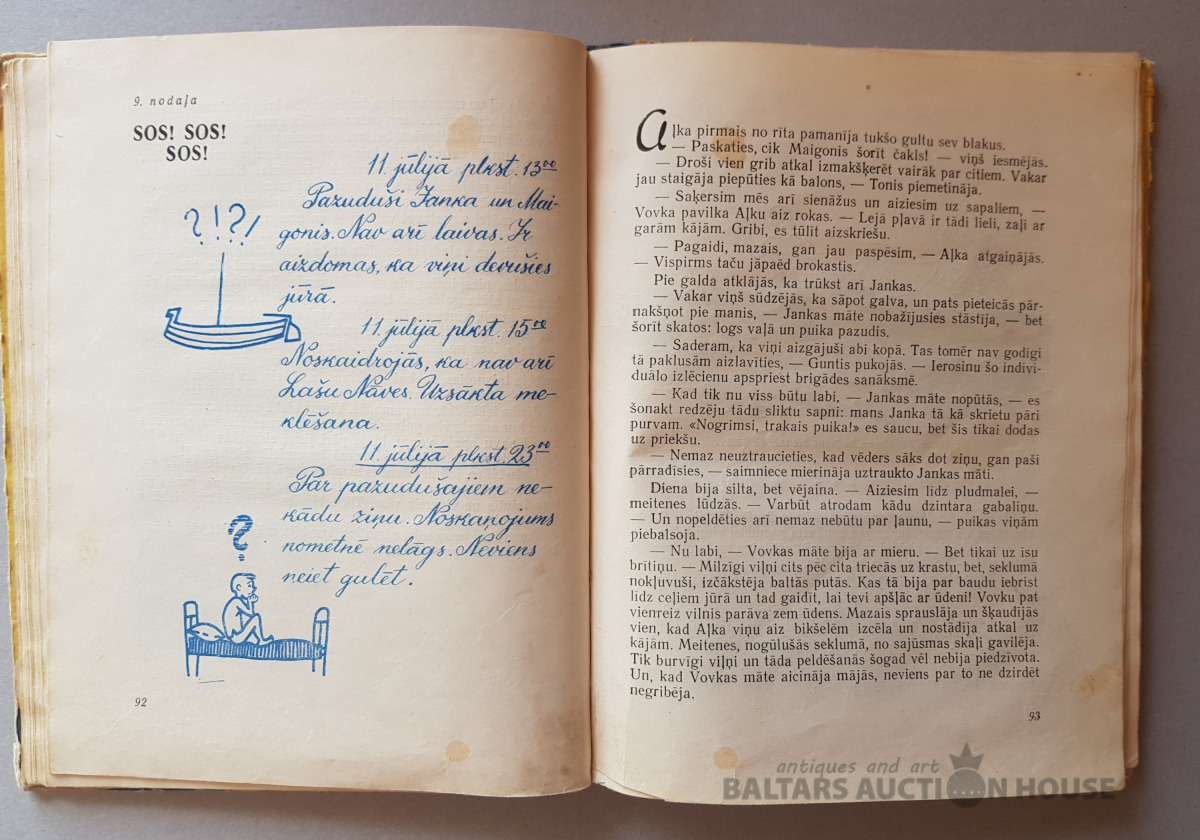 9. nodaļa
SOS! SOS!
SOS!
?!?!
11. jūlijā plkst. 13⁰⁰
Pazuduši Janka un Mai-
gonis. Nav arī laivas. Ir
aizdomas, ka viņi devušies
jūrā.
11. jūlijā plkst. 15⁰⁰
Noskaidrojās, ka nav arī
Lašu Nāves. Uzsākta me-
klēšana.
11. jūlijā plkst. 23⁰⁰
Par pazudušajiem ne-
kādu ziņu. Noskaņojums
nometnē nelāgs. Neviens
neiet gulēt.
?
92
Aļka pirmais no rīta pamanīja tukšo gultu sev blakus.
— Paskaties, cik Maigonis šorīt čakls! — viņš iesmējās.
— Droši vien grib atkal izmakšķerēt vairāk par citiem. Vakar
jau staigāja piepūties kā balons, — Tonis piemetināja.
— Saķersim mēs arī sienāžus un aiziesim uz sapaliem, —
Vovka pavilka Aļku aiz rokas. — Lejā pļavā ir tādi lieli, zaļi ar
garām kājām. Gribi, es tūlīt aizskriešu.
— Pagaidi, mazais, gan jau paspēsim, — Aļka atgaiņājās.
— Vispirms taču jāpaēd brokastis.
Pie galda atklājās, ka trūkst arī Jankas.
— Vakar viņš sūdzējās, ka sāpot galva, un pats pieteicās pār-
nakšņot pie manis, — Jankas māte nobažījusies stāstīja, — bet
šorīt skatos: logs vaļā un puika pazudis.
— Saderam, ka viņi aizgājuši abi kopā. Tas tomēr nav godīgi
tā paklusām aizlavīties, — Guntis pukojās. — Ierosinu šo indivi-
duālo izlēcienu apspriest brigādes sanāksmē.
— Kad tik nu viss būtu labi, — Jankas māte nopūtās, — es
šonakt redzēju tādu sliktu sapni: mans Janka tā kā skrietu pāri
purvam. «Nogrimsi, trakais puika!» es saucu, bet šis tikai dodas
uz priekšu.
— Nemaz neuztraucieties, kad vēders sāks dot ziņu, gan paši
pārradīsies, — saimniece mierināja uztraukto Jankas māti.
Diena bija silta, bet vējaina. — Aiziesim līdz pludmalei, —
meitenes lūdzās. — Varbūt atrodam kādu dzintara gabaliņu.
— Un nopeldēties arī nemaz nebūtu par ļaunu, — puikas viņām
piebalsoja.
— Nu labi, — Vovkas māte bija ar mieru. — Bet tikai uz īsu
brītiņu. — Milzīgi viļņi cits pēc cita triecās uz krastu, bet, seklumā
nokļuvuši, izčākstēja baltās putās. Kas tā bija par baudu iebrist
līdz ceļiem jūrā un tad gaidīt, lai tevi apšļāc ar ūdeni! Vovku pat
vienreiz vilnis parāva zem ūdens. Mazais sprauslāja un šķaudījās
vien, kad Aļka viņu aiz bikšelēm izcēla un nostādīja atkal uz
kājām. Meitenes, nogūlušās seklumā, no sajūsmas skaļi gavilēja.
Tik burvīgi viļņi un tāda peldēšanās šogad vēl nebija piedzīvota.
Un, kad Vovkas māte aicināja mājās, neviens par to ne dzirdēt
negribēja.
93
antiques and art
BALTARS AUCTION HOUSE